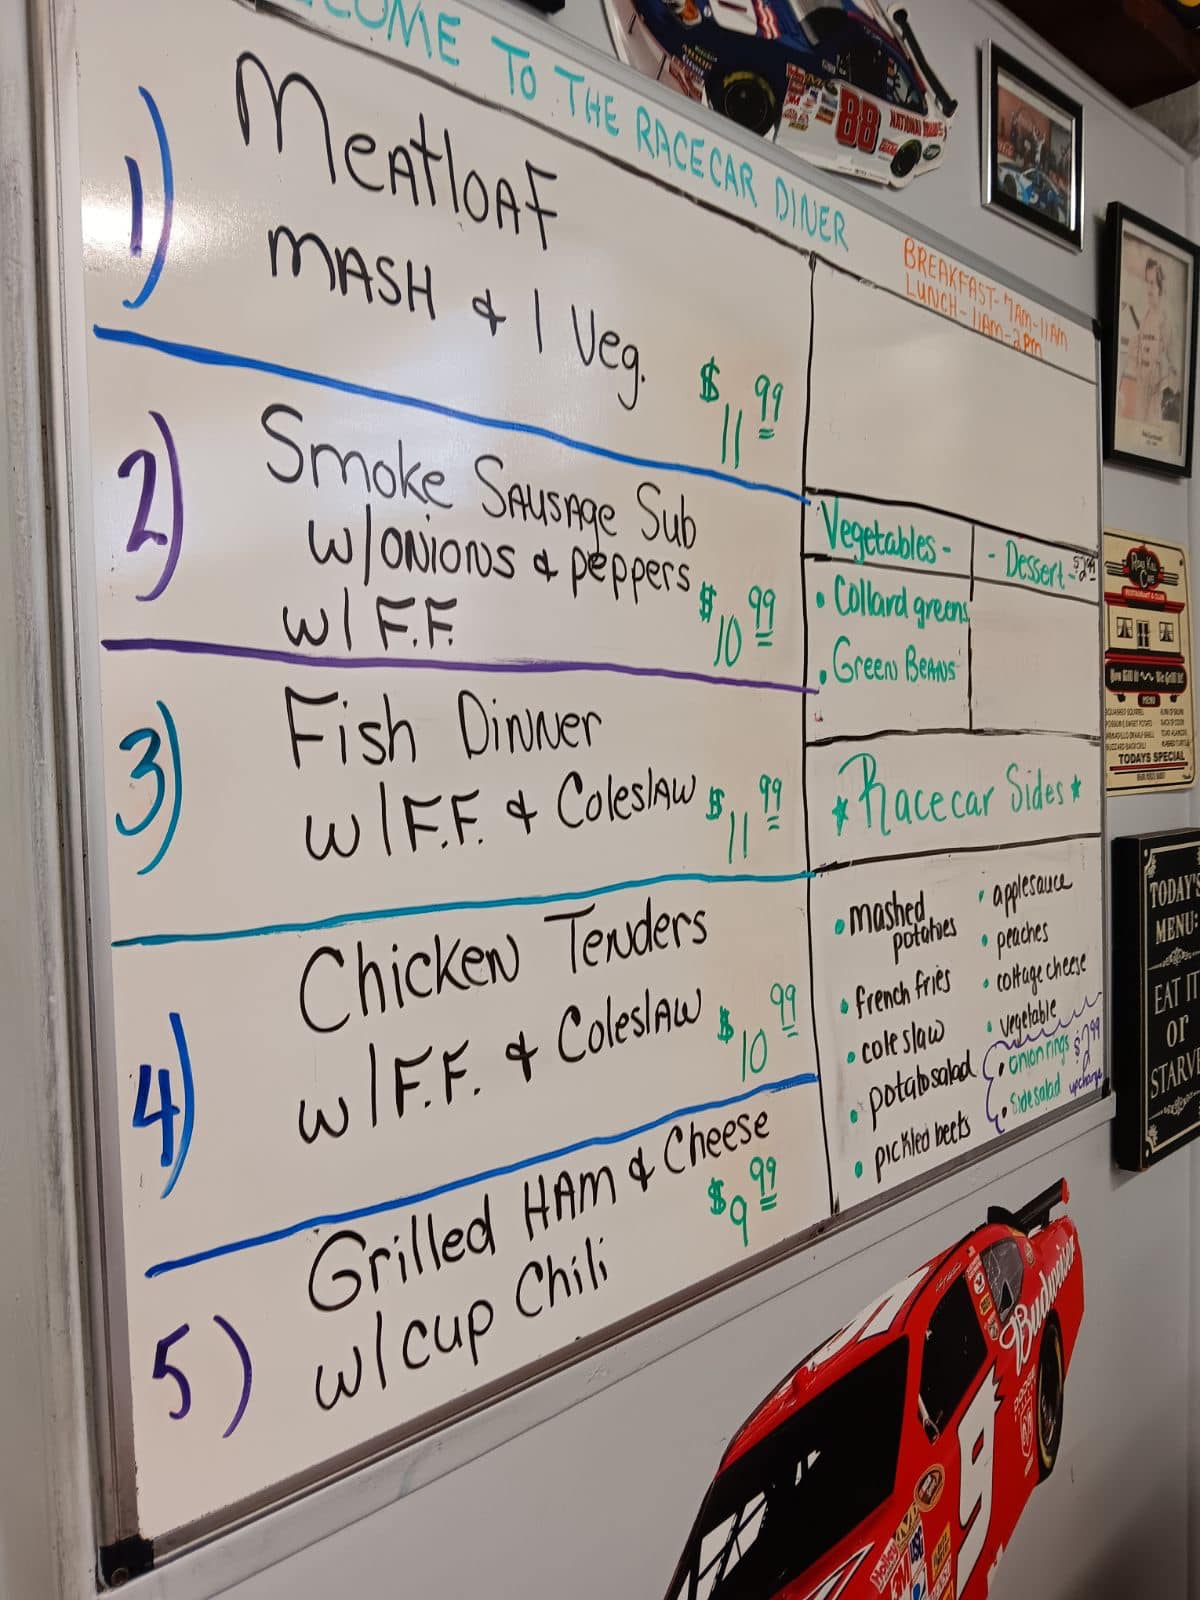 COME TO THE RACECAR DINER
BREAKFAST- 7AM-11AM
LUNCH- 11AM-2PM
1) MEATLOAF
MASH & 1 Veg.
$11.99
2) Smoke SAUSAge Sub
w/ONIONS & peppers
w/ F.F.
$10.99
3) Fish DINNer
w/ F.F. & ColeslAW
$11.99
4) ChickeN TeNders
w/ F.F. & ColeslAW
$10.99
5) Grilled HAM & Cheese
w/ cup Chili
$9.99
Vegetables -
• Collard greens
• GreeN BeANS
- Dessert - $2.99
★ Racecar Sides ★
• mashed
potatoes
• french fries
• cole slaw
• potato salad
• pickled beets
• applesauce
• peaches
• cottage cheese
• vegetable
• onion rings
• side salad
upcharge
88
NATIONAL GUARD
ROAD KILL
CAFE
RESTAURANT & CLUB
You Kill It We Grill It!
MENU
TODAYS SPECIAL
TODAY'S
MENU:
EAT IT
or
STARVE
Budweiser
9